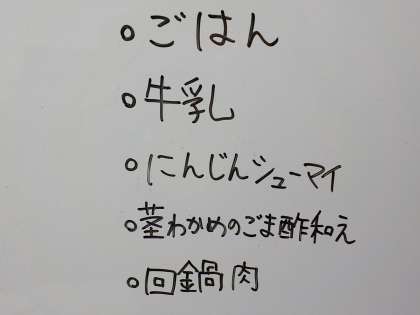 ○ごはん
○牛乳
○にんじんシューマイ
○茎わかめのごま酢和え
○回鍋肉